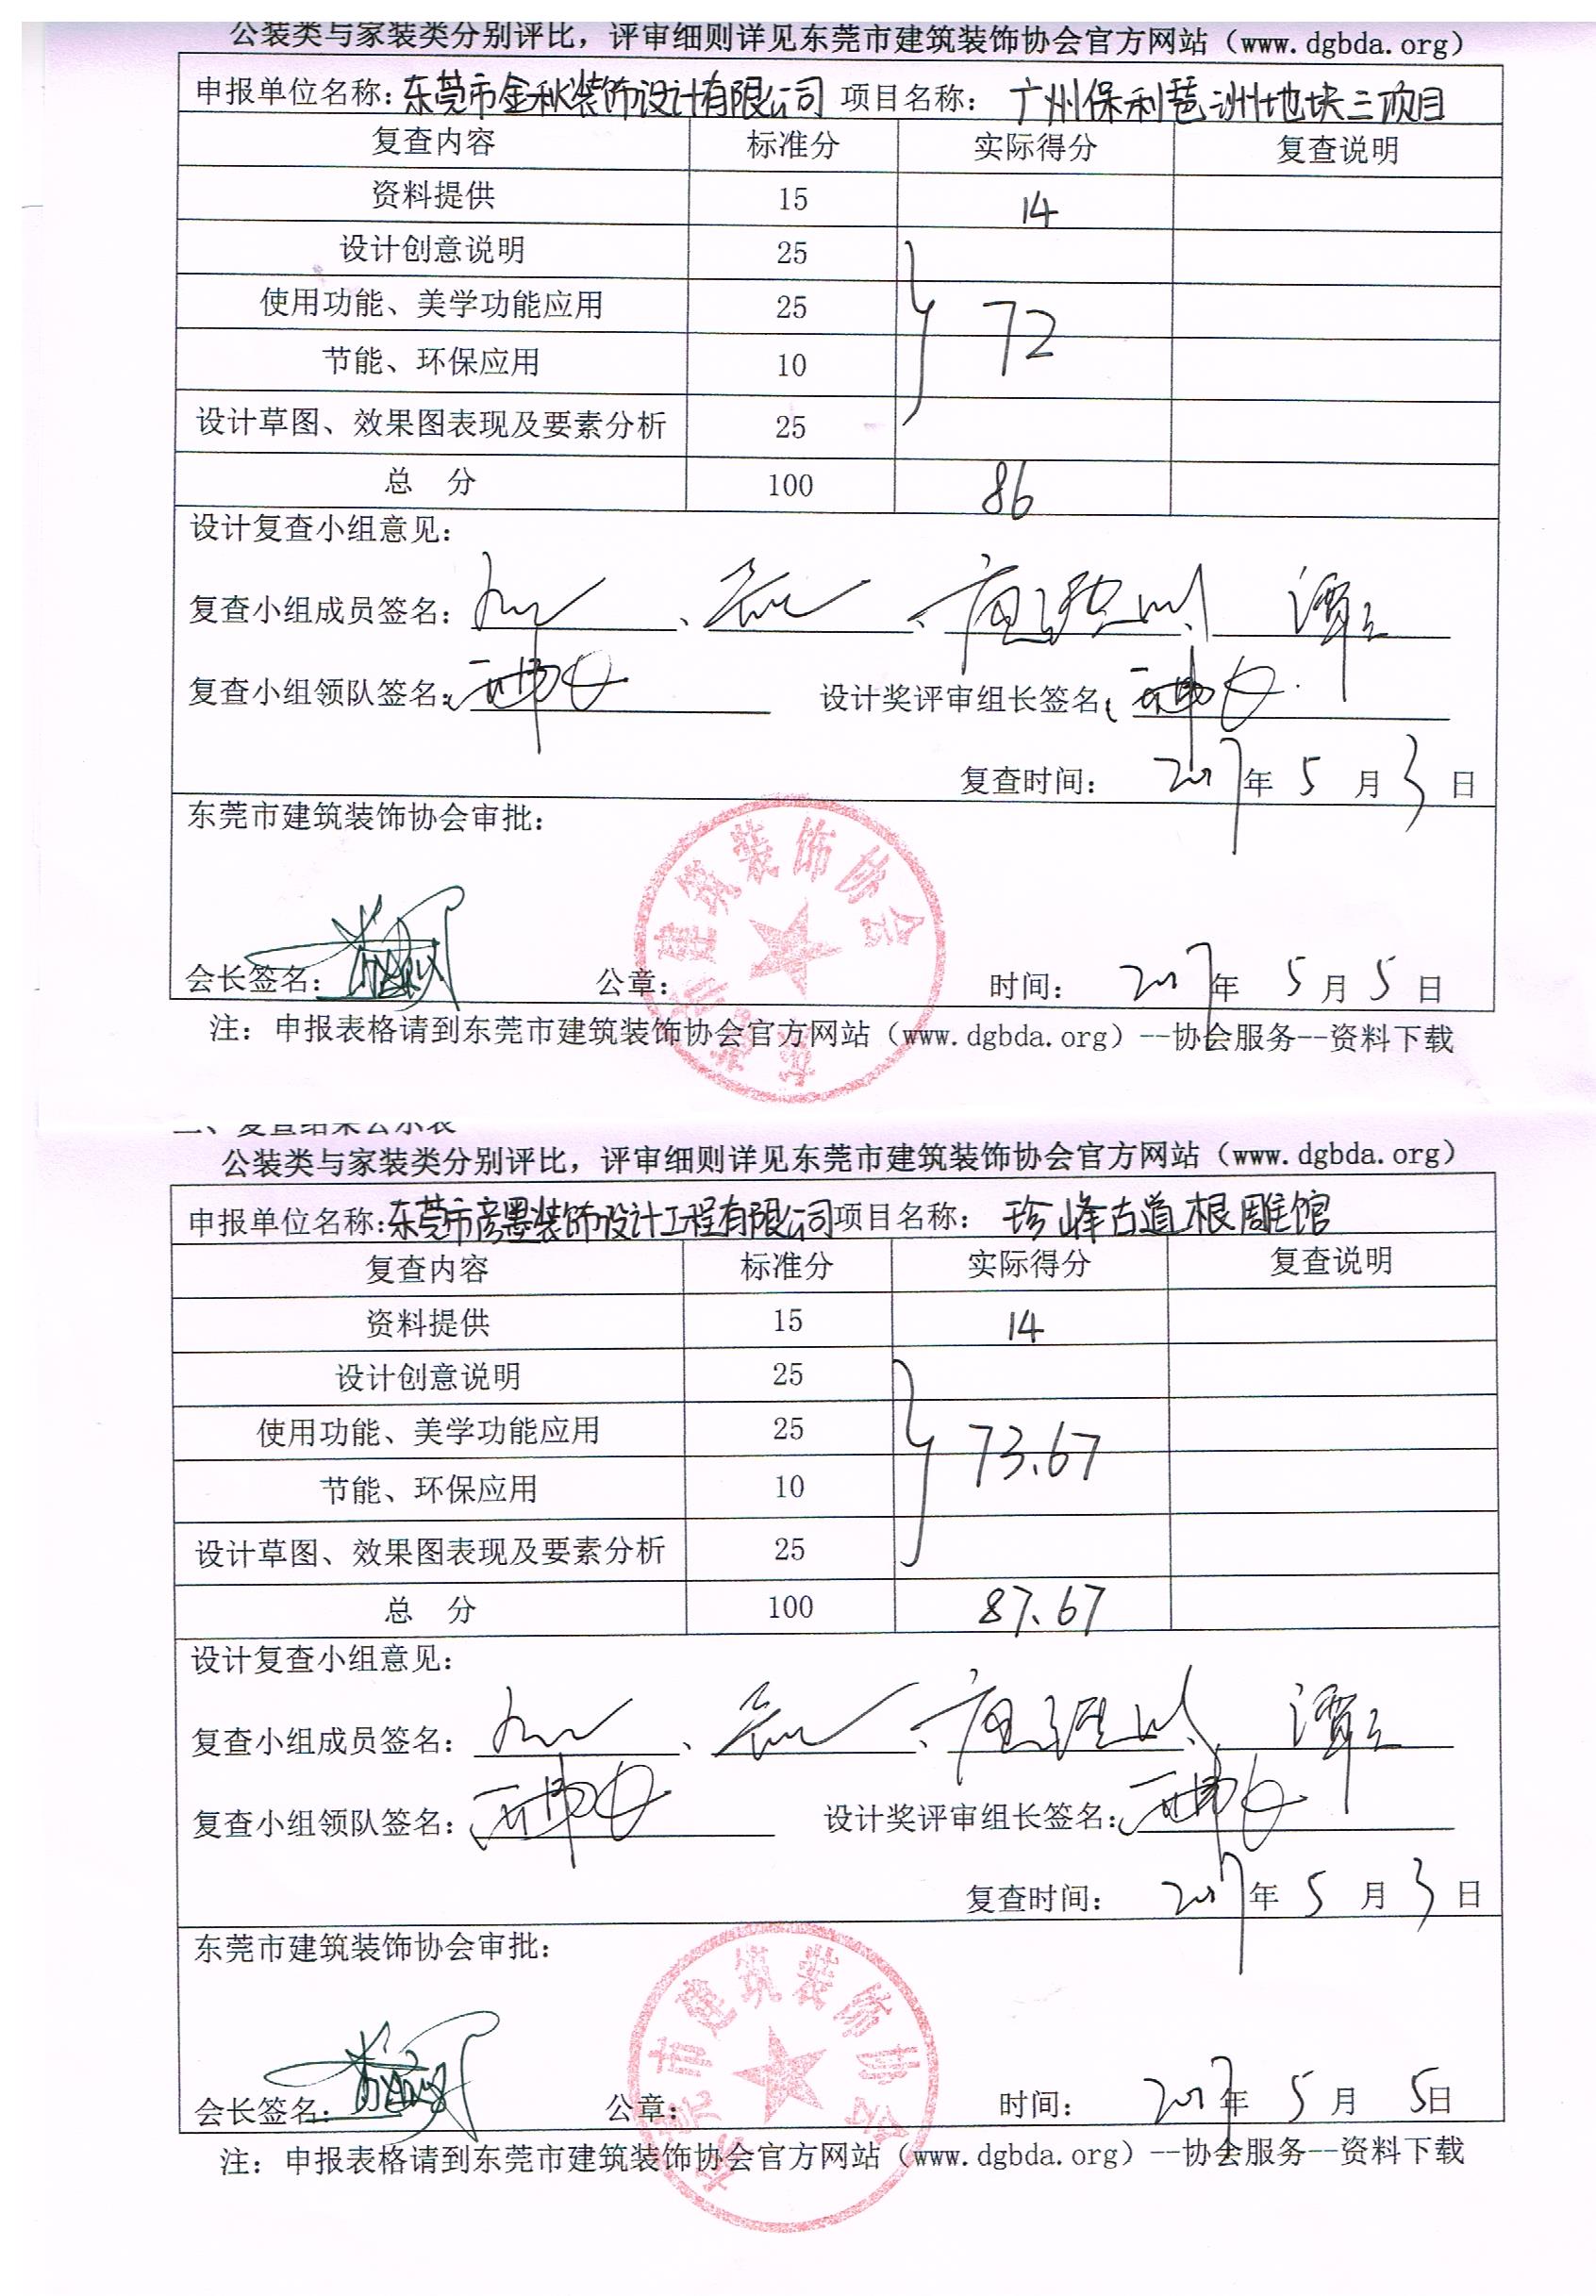 公装类与家装类分别评比，评审细则详见东莞市建筑装饰协会官方网站（www.dgbda.org）
申报单位名称：东莞市金秋装饰设计有限公司 项目名称： 广州保利琶洲地块三项目
复查内容 标准分 实际得分 复查说明
资料提供 15 14
设计创意说明 25
使用功能、美学功能应用 25 72
节能、环保应用 10
设计草图、效果图表现及要素分析 25
总 分 100 86
设计复查小组意见：
复查小组成员签名： 、 、 、
复查小组领队签名： 设计奖评审组长签名：
复查时间： 2017年 5 月 3 日
东莞市建筑装饰协会审批：
东莞市建筑装饰协会
会长签名： 公章： 时间： 2017年 5 月 5 日
注：申报表格请到东莞市建筑装饰协会官方网站（www.dgbda.org）--协会服务--资料下载
二、复查结果公示表
公装类与家装类分别评比，评审细则详见东莞市建筑装饰协会官方网站（www.dgbda.org）
申报单位名称：东莞市彦墨装饰设计工程有限公司 项目名称： 珍峰古道根雕馆
复查内容 标准分 实际得分 复查说明
资料提供 15 14
设计创意说明 25
使用功能、美学功能应用 25 73.67
节能、环保应用 10
设计草图、效果图表现及要素分析 25
总 分 100 87.67
设计复查小组意见：
复查小组成员签名： 、 、 、
复查小组领队签名： 设计奖评审组长签名：
复查时间： 2017年 5 月 3 日
东莞市建筑装饰协会审批：
东莞市建筑装饰协会
会长签名： 公章： 时间： 2017年 5 月 5日
注：申报表格请到东莞市建筑装饰协会官方网站（www.dgbda.org）--协会服务--资料下载